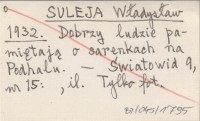 SULEJA Władysław
1932. Dobrzy ludzie pa-
miętają o sarenkach na
Podhalu. — Światowid 9,
nr 15: , il. Tylko fot.